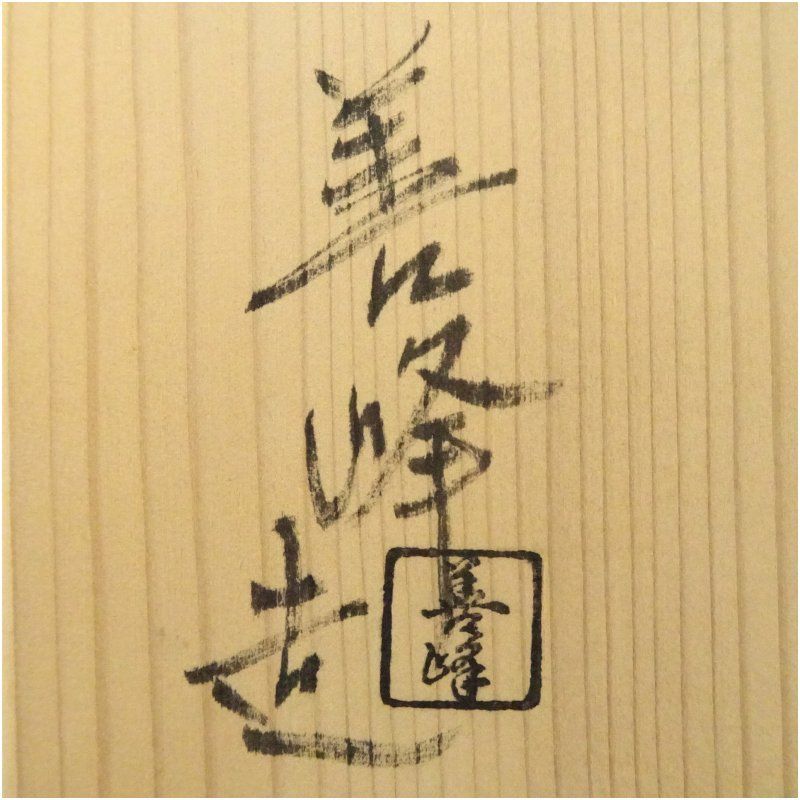 善峰造
善峰